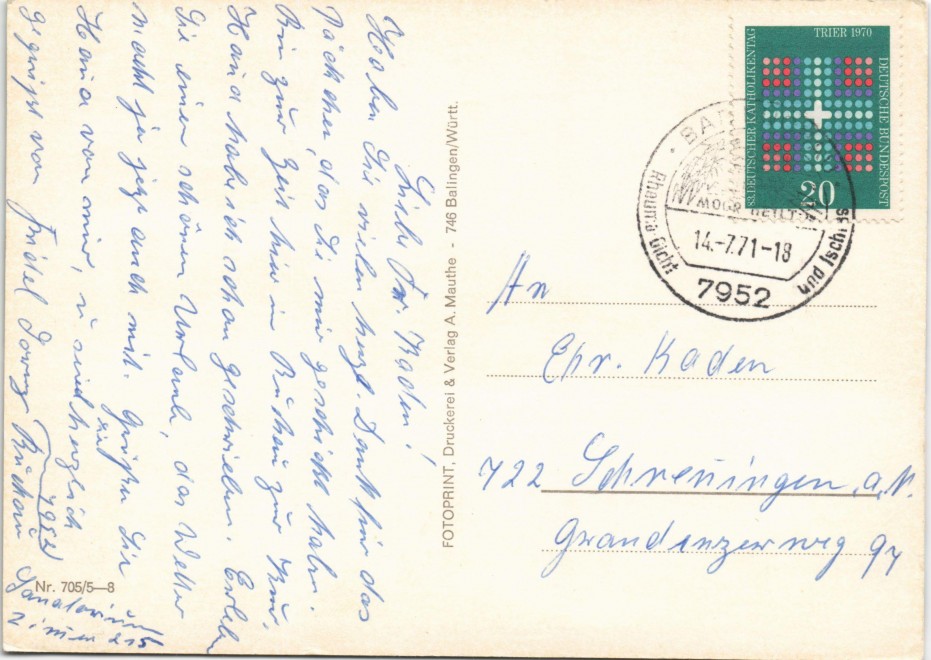 Liebe Fr. Kaden!
Haben Sie vielen herzl. Dank für das
Päckchen, das Sie mir geschickt haben.
Bin zur Zeit hier in Buchau zur Kur,
Hana habe ich schon geschrieben.
Sie einen schönen Urlaub, das Wetter
macht ja jetzt auch mit. Grüßen Sie
Hana von mir, u. sind herzlich
gegrüßt von Fridel
Buchau
7952
Sanatorium
Zimmer 215
Nr. 705/5—8
FOTOPRINT, Druckerei & Verlag A. Mauthe - 746 Balingen/Württ.
TRIER 1970
83. DEUTSCHER KATHOLIKENTAG
DEUTSCHE BUNDESPOST
20
BAD
MOOR HEILT
Rheuma Gicht
und Ischias
14.-7.71-18
7952
An
Chr. Kaden
722 Schwenningen a.N.
Graudenzerweg 94